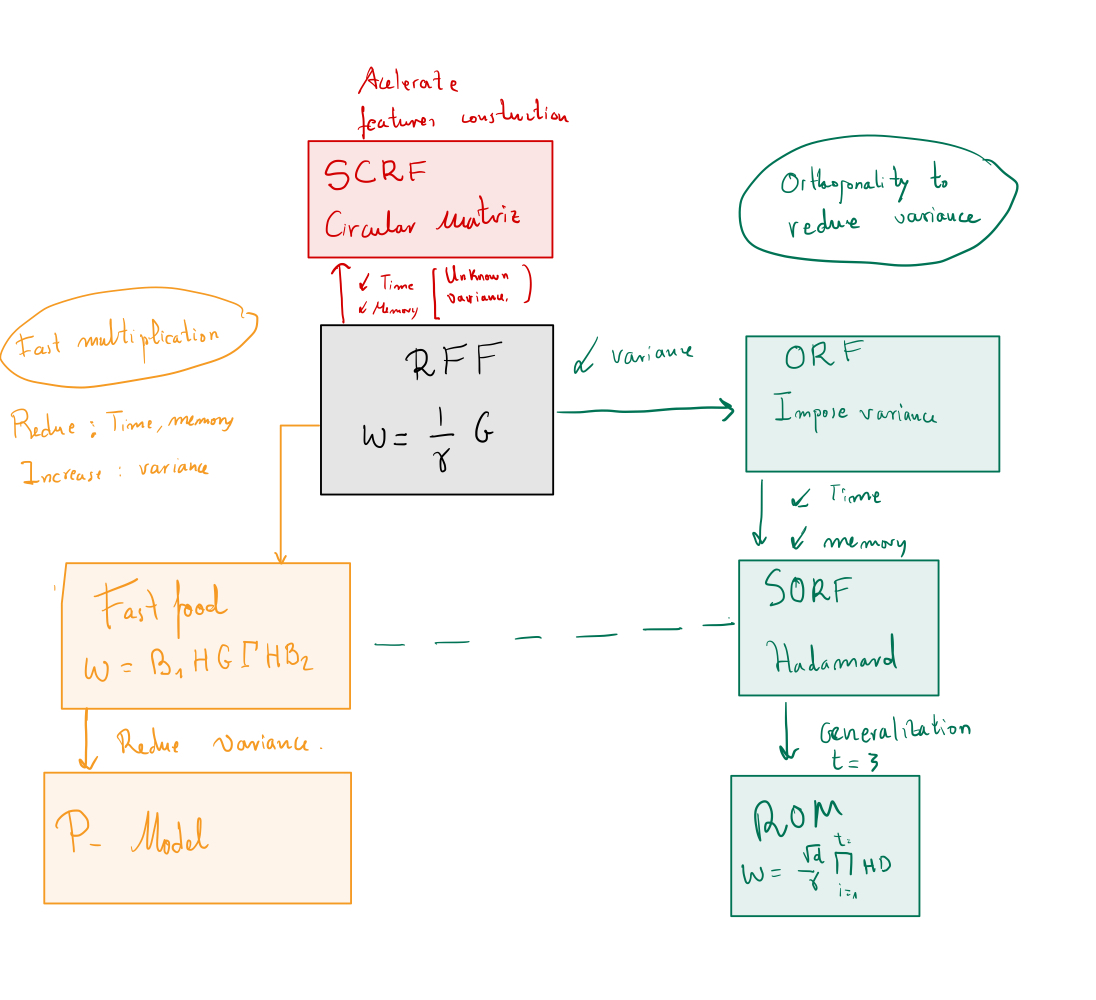 Acelerate
features construction
SCRF
Circular Matriz
↙ Time
↙ Memory
[Unknown
variance.)
Orthogonality to
reduce variance
Fast multiplication
Reduce : Time, memory
Increase : variance
RFF
W = 1/γ G
variance
ORF
Impose variance
↙ Time
↙ memory
Fast food
W = B₁ H G Γ H B₂
Reduce variance.
P- Model
SORF
Hadamard
Generalization
t = 3
ROM
W = √d/γ ∏ᵢ₌₁ᵗ HD